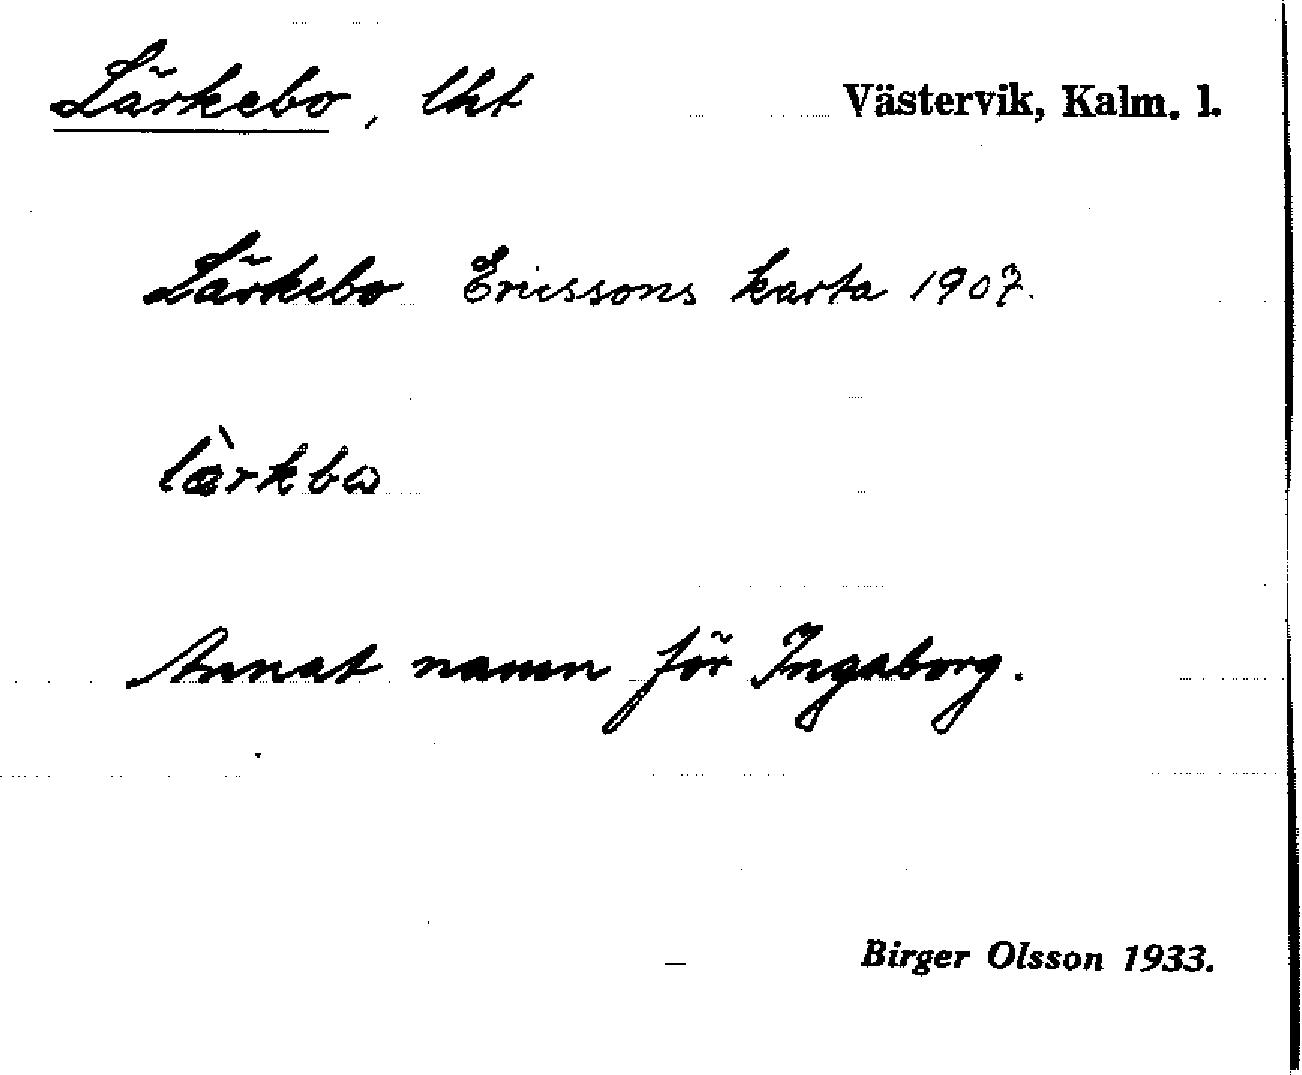 Lärkebo, lht Västervik, Kalm. l.
Lärkebo Ericssons karta 1907.
læ̀rkbɷ
Annat namn för Ingaborg.
Birger Olsson 1933.